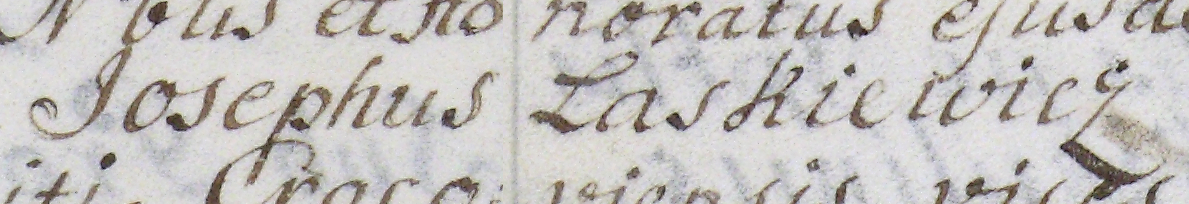 Nobilis et Ho noratus ejusd
Josephus Laskiewicz
iti Craco viensis vices